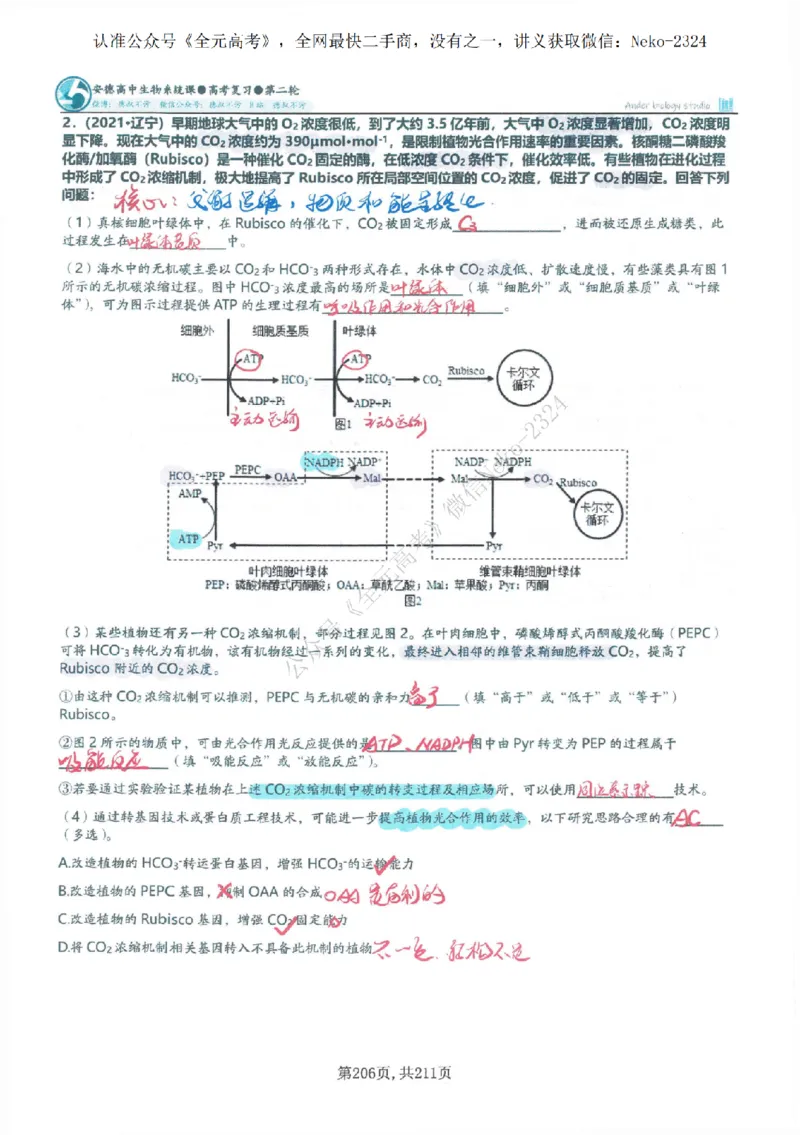 认准公众号《全元高考》，全网最快二手商，没有之一，讲义获取微信：Neko-2324
安德高中生物系统课●高考复习●第二轮
Andor biology studio
2.（2021·辽宁）早期地球大气中的 O₂ 浓度很低，到了大约 3.5 亿年前，大气中 O₂ 浓度显著增加，CO₂ 浓度明
显下降。现在大气中的 CO₂ 浓度约为 390μmol·mol⁻¹，是限制植物光合作用速率的重要因素。核酮糖二磷酸羧
化酶/加氧酶（Rubisco）是一种催化 CO₂ 固定的酶，在低浓度 CO₂ 条件下，催化效率低。有些植物在进化过程
中形成了 CO₂ 浓缩机制，极大地提高了 Rubisco 所在局部空间位置的 CO₂ 浓度，促进了 CO₂ 的固定。回答下列
问题： 核心：文献逻辑，物质和能量转化.
（1）真核细胞叶绿体中，在 Rubisco 的催化下，CO₂ 被固定形成 C₃ ，进而被还原生成糖类，此
过程发生在叶绿体基质 中。
（2）海水中的无机碳主要以 CO₂ 和 HCO⁻₃ 两种形式存在，水体中 CO₂ 浓度低、扩散速度慢，有些藻类具有图 1
所示的无机碳浓缩过程。图中 HCO⁻₃ 浓度最高的场所是叶绿体（填“细胞外”或“细胞质基质”或“叶绿
体”），可为图示过程提供 ATP 的生理过程有呼吸作用和光合作用。
细胞外 细胞质基质 叶绿体
ATP ATP
HCO₃⁻ HCO₃⁻ HCO₃⁻ CO₂ Rubisco 卡尔文
循环
ADP+Pi ADP+Pi
主动运输 图1 主动运输
NADPH NADP⁺ NADP⁺ NADPH
HCO₃⁻+PEP PEPC OAA Mal Mal CO₂ Rubisco
AMP 卡尔文
循环
ATP Pyr Pyr
叶肉细胞叶绿体 维管束鞘细胞叶绿体
PEP：磷酸烯醇式丙酮酸；OAA：草酰乙酸；Mal：苹果酸；Pyr：丙酮
图2
公众号《全元高考》微信Neko-2324
（3）某些植物还有另一种 CO₂ 浓缩机制，部分过程见图 2。在叶肉细胞中，磷酸烯醇式丙酮酸羧化酶（PEPC）
可将 HCO⁻₃ 转化为有机物，该有机物经过一系列的变化，最终进入相邻的维管束鞘细胞释放 CO₂，提高了
Rubisco 附近的 CO₂ 浓度。
①由这种 CO₂ 浓缩机制可以推测，PEPC 与无机碳的亲和力高于（填“高于”或“低于”或“等于”）
Rubisco。
②图 2 所示的物质中，可由光合作用光反应提供的是ATP、NADPH图中由 Pyr 转变为 PEP 的过程属于
吸能反应（填“吸能反应”或“放能反应”）。
③若要通过实验验证某植物在上述 CO₂ 浓缩机制中碳的转变过程及相应场所，可以使用同位素示踪技术。
（4）通过转基因技术或蛋白质工程技术，可能进一步提高植物光合作用的效率，以下研究思路合理的有AC
（多选）。
A.改造植物的 HCO₃⁻转运蛋白基因，增强 HCO₃⁻的运输能力
B.改造植物的 PEPC 基因，抑制 OAA 的合成 OAA 是有利的
C.改造植物的 Rubisco 基因，增强 CO₂ 固定能力
D.将 CO₂ 浓缩机制相关基因转入不具备此机制的植物 不一定
第206页,共211页